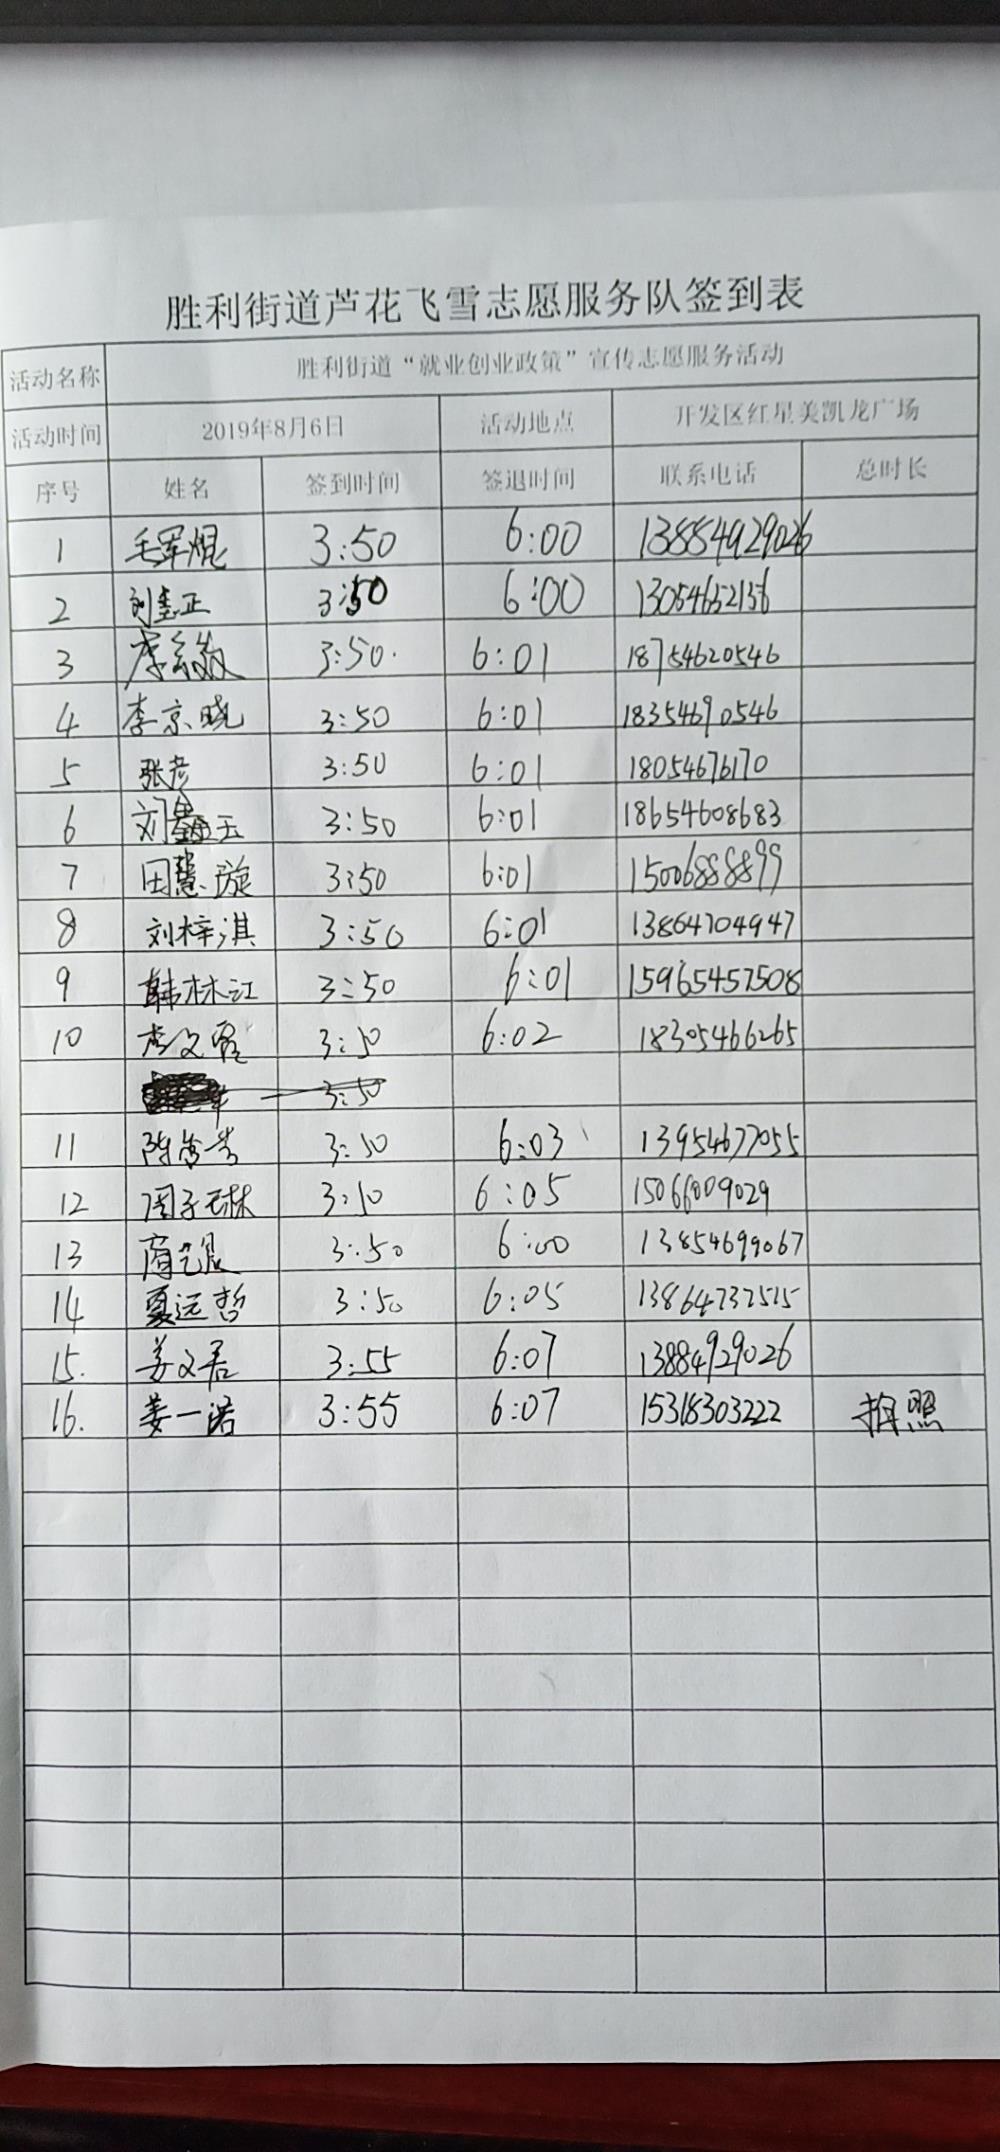 胜利街道芦花飞雪志愿服务队签到表
活动名称 胜利街道“就业创业政策”宣传志愿服务活动
活动时间 2019年8月6日 活动地点 开发区红星美凯龙广场
序号 姓名 签到时间 签退时间 联系电话 总时长
1 毛军焜 3:50 6:00 13854929026
2 3:50 6:00 13054652156
3 3:50 6:01 18754620546
4 李京晓 3:50 6:01 18354690546
5 张彦 3:50 6:01 18054676170
6 刘 玉 3:50 6:01 18654608683
7 田慧璇 3:50 6:01 15006888899
8 刘梓淇 3:50 6:01 13864704947
9 韩林江 3:50 6:01 15965457508
10 李文 3:50 6:02 18305466265
3:50
11 陈 3:50 6:03 13954677055
12 周子琳 3:50 6:05 15066009029
13 3:50 6:00 13854699067
14 夏远哲 3:50 6:05 13864732515
15. 姜文君 3:55 6:07 13884929026
16. 姜一诺 3:55 6:07 15318303222 拍照